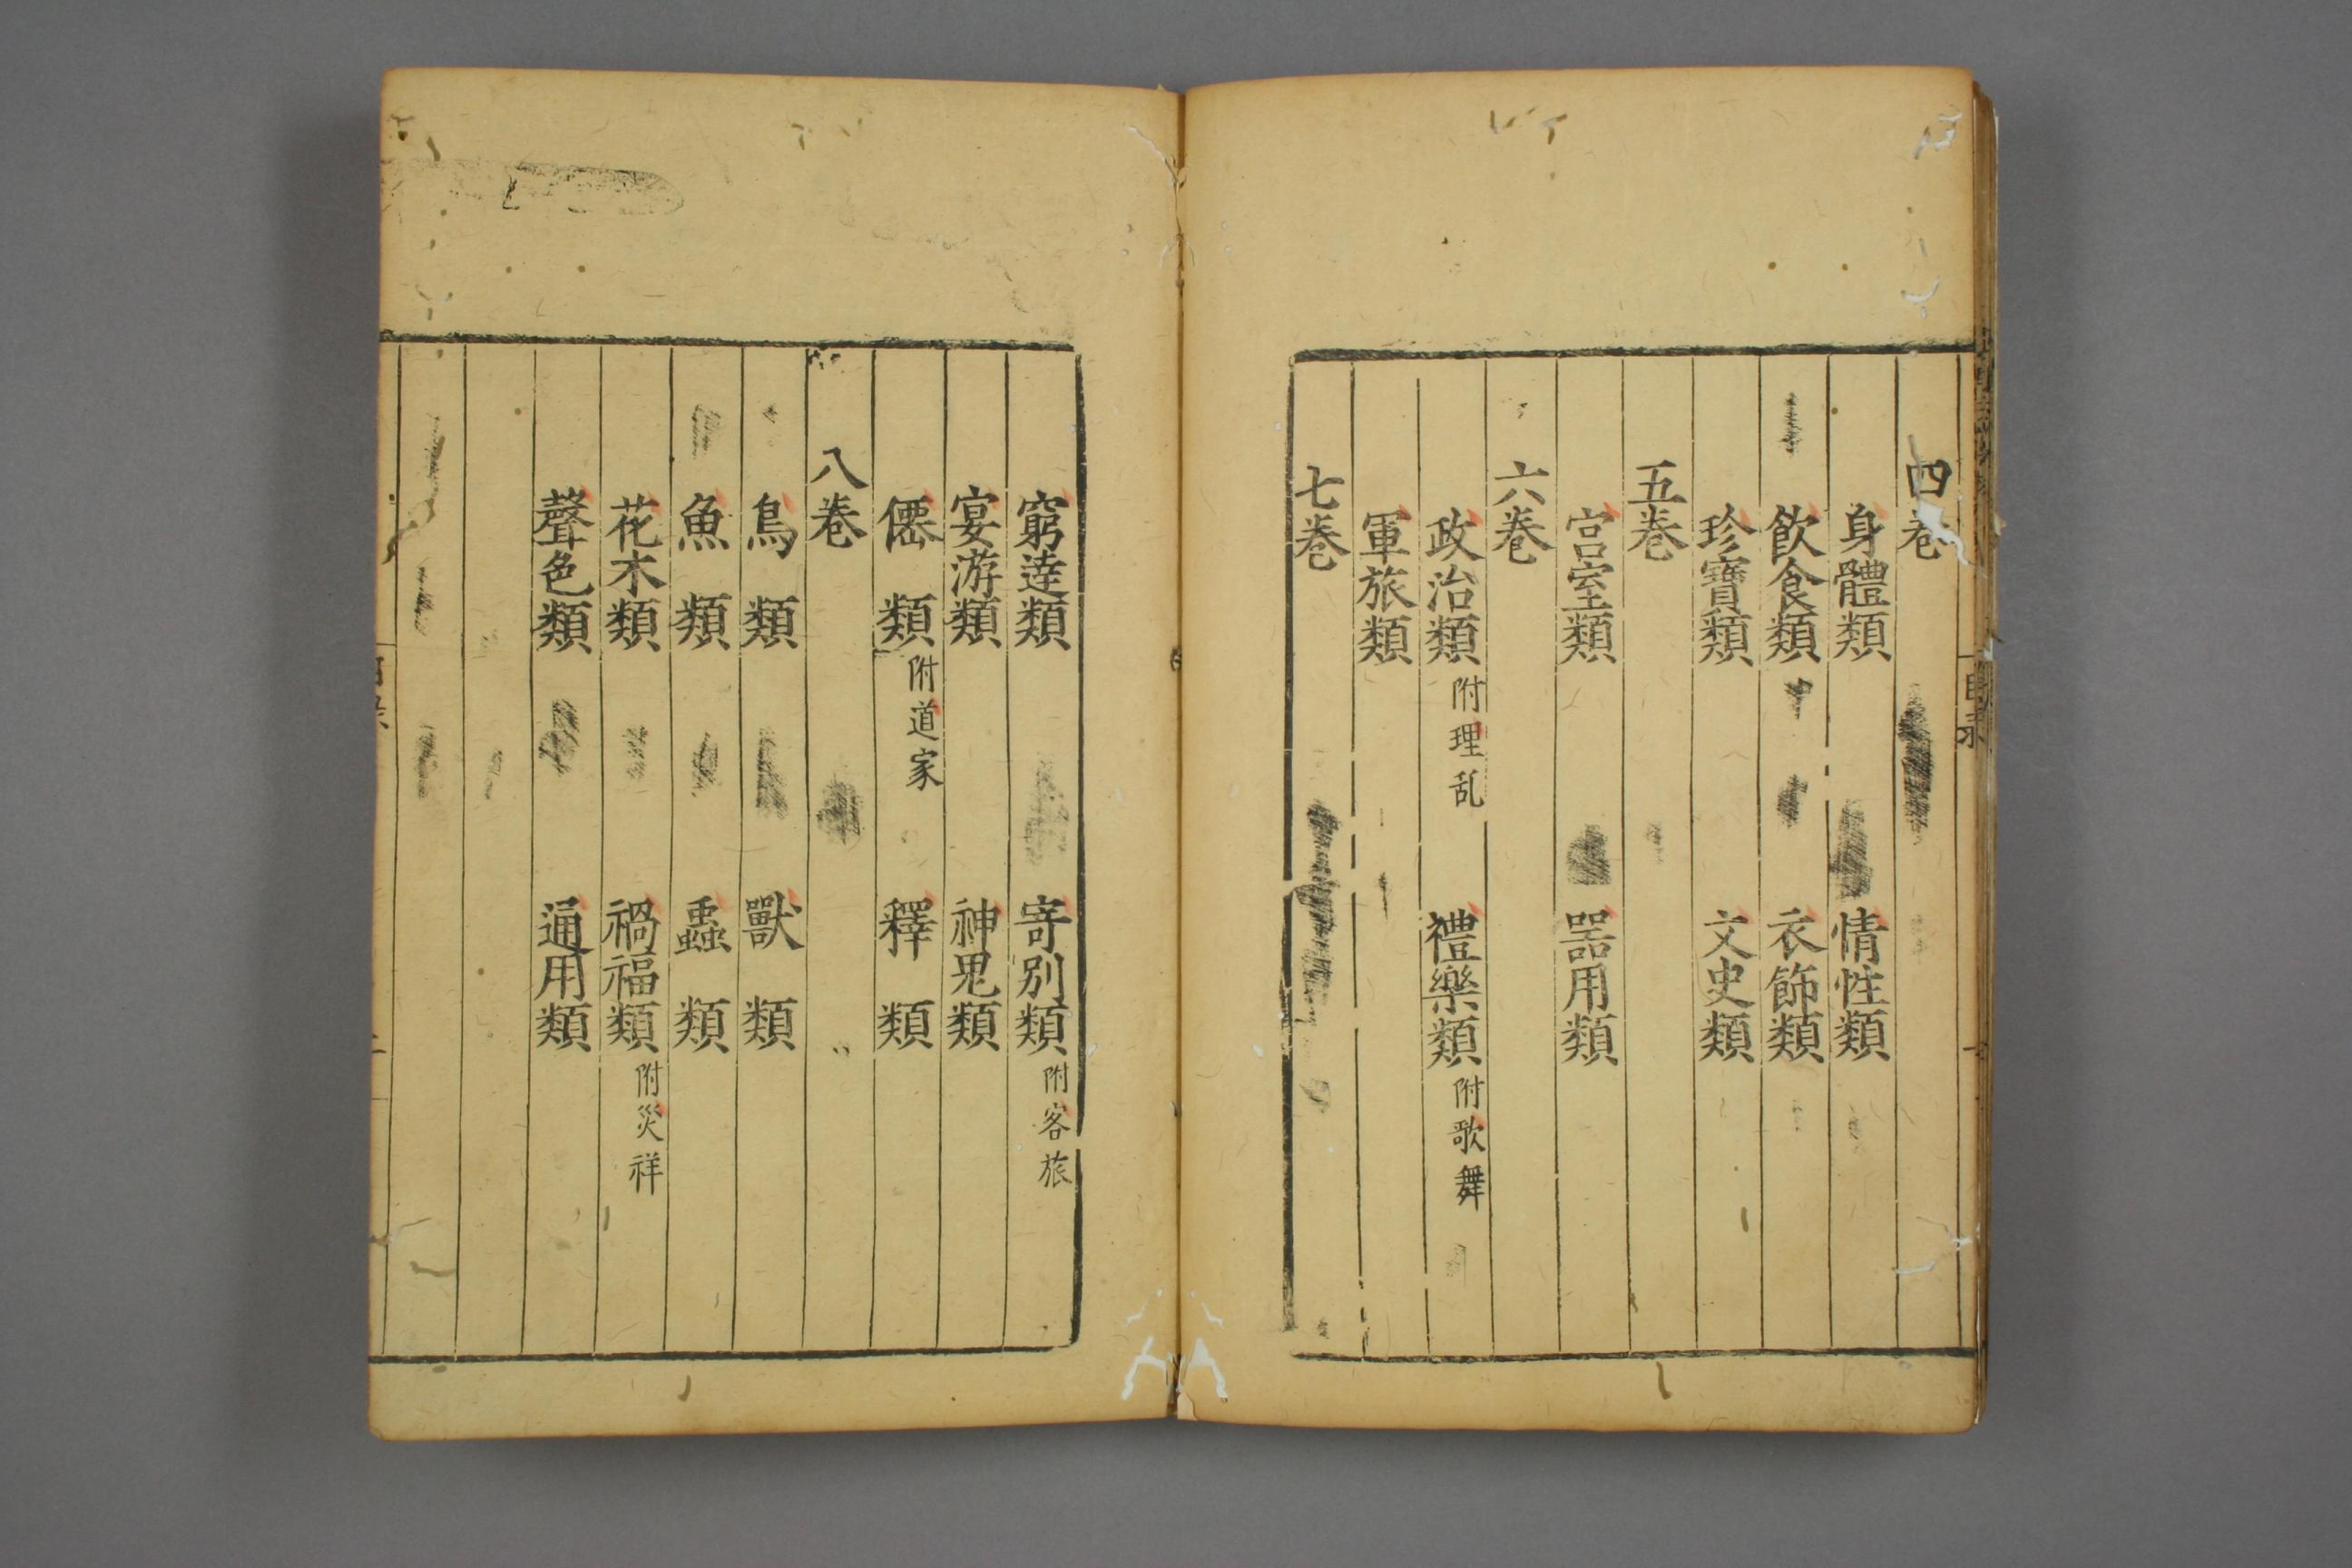 四卷
身體類 情性類
飲食類 衣飾類
珍寶類 文史類
五卷
宫室類 器用類
六卷
政治類附理乱 禮樂類附歌舞
軍旅類
七卷
窮達類 寄别類附客旅
宴游類 神鬼類
僊類附道家 釋類
八卷
鳥類 獸類
魚類 蟲類
花木類 禍福類附災祥
聲色類 通用類
目录